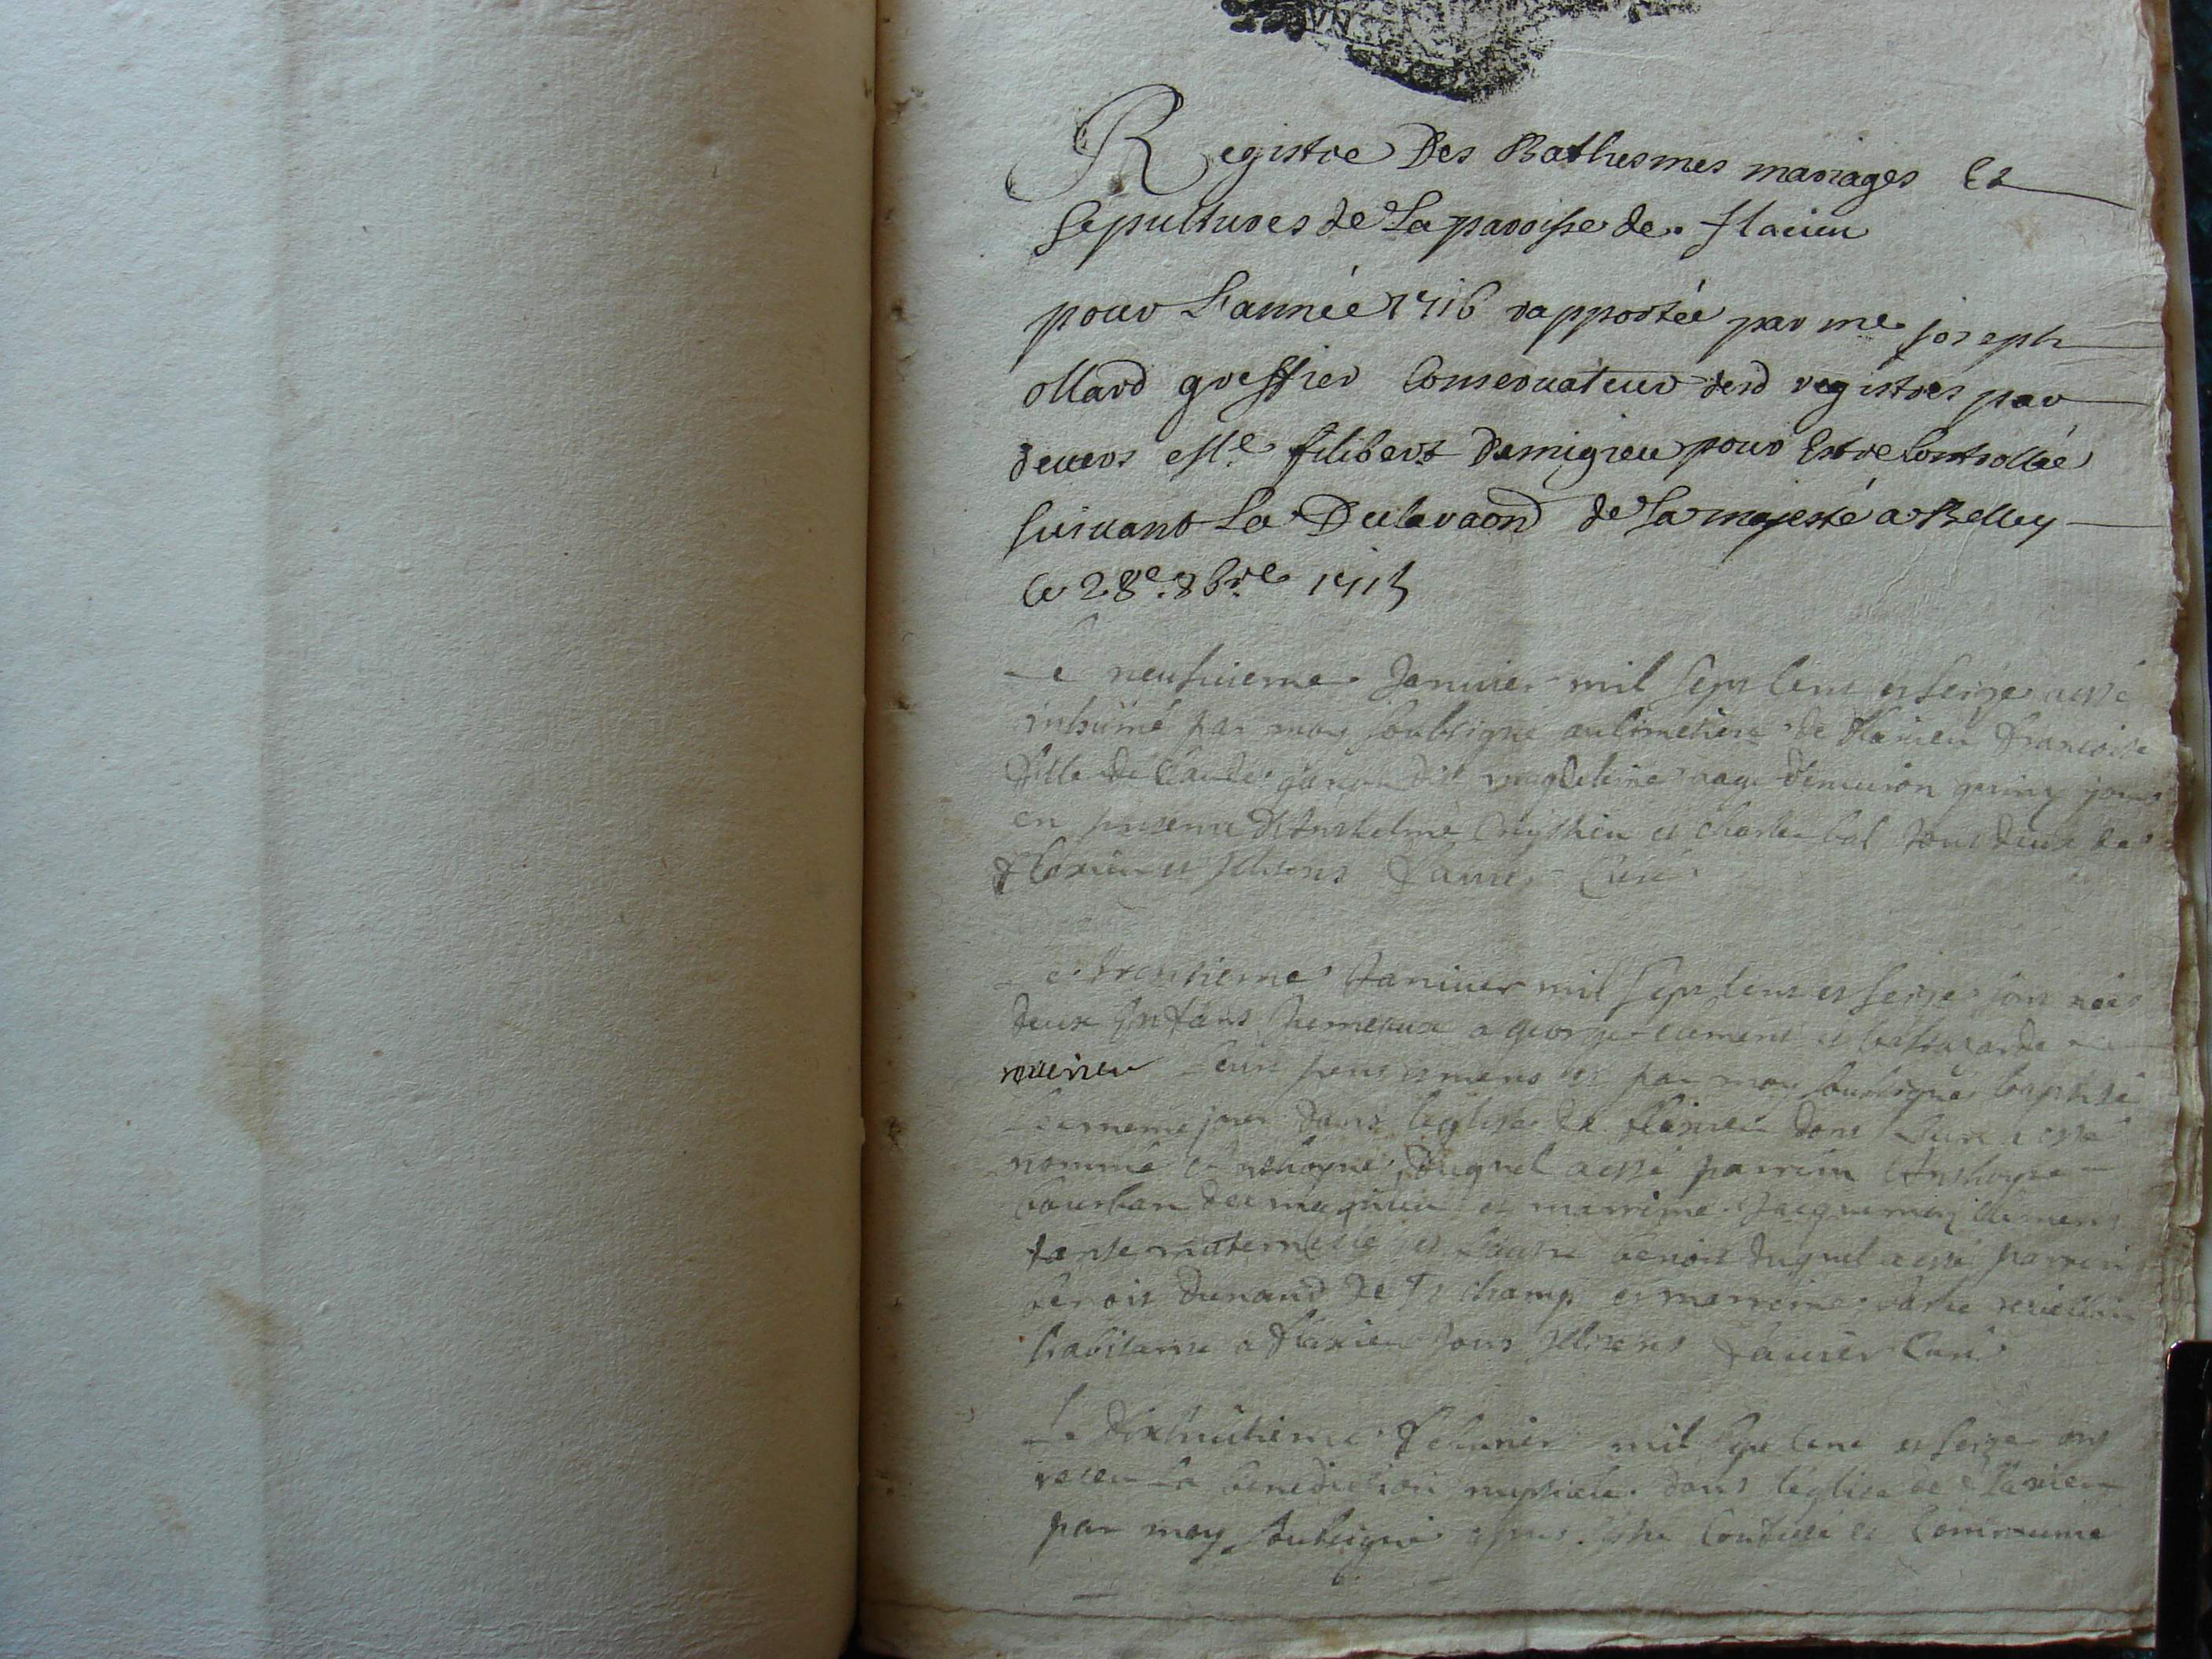 Registre Des Bathesmes mariages Et
sepultures de La paroisse de. flacieu
pour L'année 1716 rapportée par me joseph
ollard greffier Conservateur desd registres par
devers Mre filibert Demigieu pour Estre Controllée
suivant La Declaraon de sa majesté a Belley
Ce 28e. 8bre 1715
Le neufvieme Janvier mil sept cent et seize a esté
inhumé par moy soubsigné au cimetiere de flaxieu francoise
fille de Claude dit magdeleine aage d'environ quinze jours
en presence d'Anthelme et Charles bal tous deux de
flaxieu et Illiterés Curé
Le treisieme Janvier mil sept cent et seize sont néés
deux Enfans Jumeaux a george clement et
Leurs peres et meres et par moy soubsigné baptisé
Le meme jour dans l'eglise de flaxieu dont l'un a esté
nommé Anthoyne, duquel a esté parrein Anthoyne
bourban de magnieu et marreine Jacquemine clement
tante maternelle et l'autre benoit duquel a esté parrein
benoit dunand de champ et marreine
habitante a flaxieu tous Illiterés Curé
Le dixhuitieme fevrier mil sept cent et seize ont
receu La benediction nuptiale dans l'eglise de flaxieu
par moy soubsigné apres s'estre Confessé et Communié